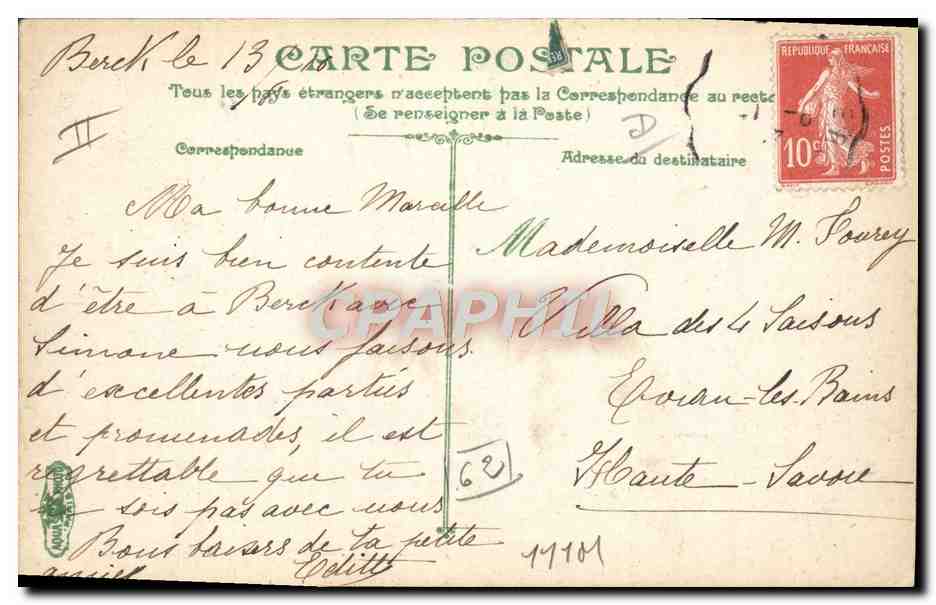 Berck le 13
CARTE POSTALE
Tous les pays étrangers n'acceptent pas la Correspondance au recto
(Se renseigner à la Poste)
II
D
Correspondance
Adresse du destinataire
REPUBLIQUE FRANÇAISE
10c
POSTES
Ma bonne Marcelle
Je suis bien contente
d'être à Berck avec
Simone nous faisons
d'excellentes parties
et promenades, il est
regrettable que tu
ne sois pas avec nous
Bons baisers de ta petite
amie Edith
Mademoiselle M. Fourey
Villa des 4 Saisons
Evian-les-Bains
Haute-Savoie
62
CPAPHIL